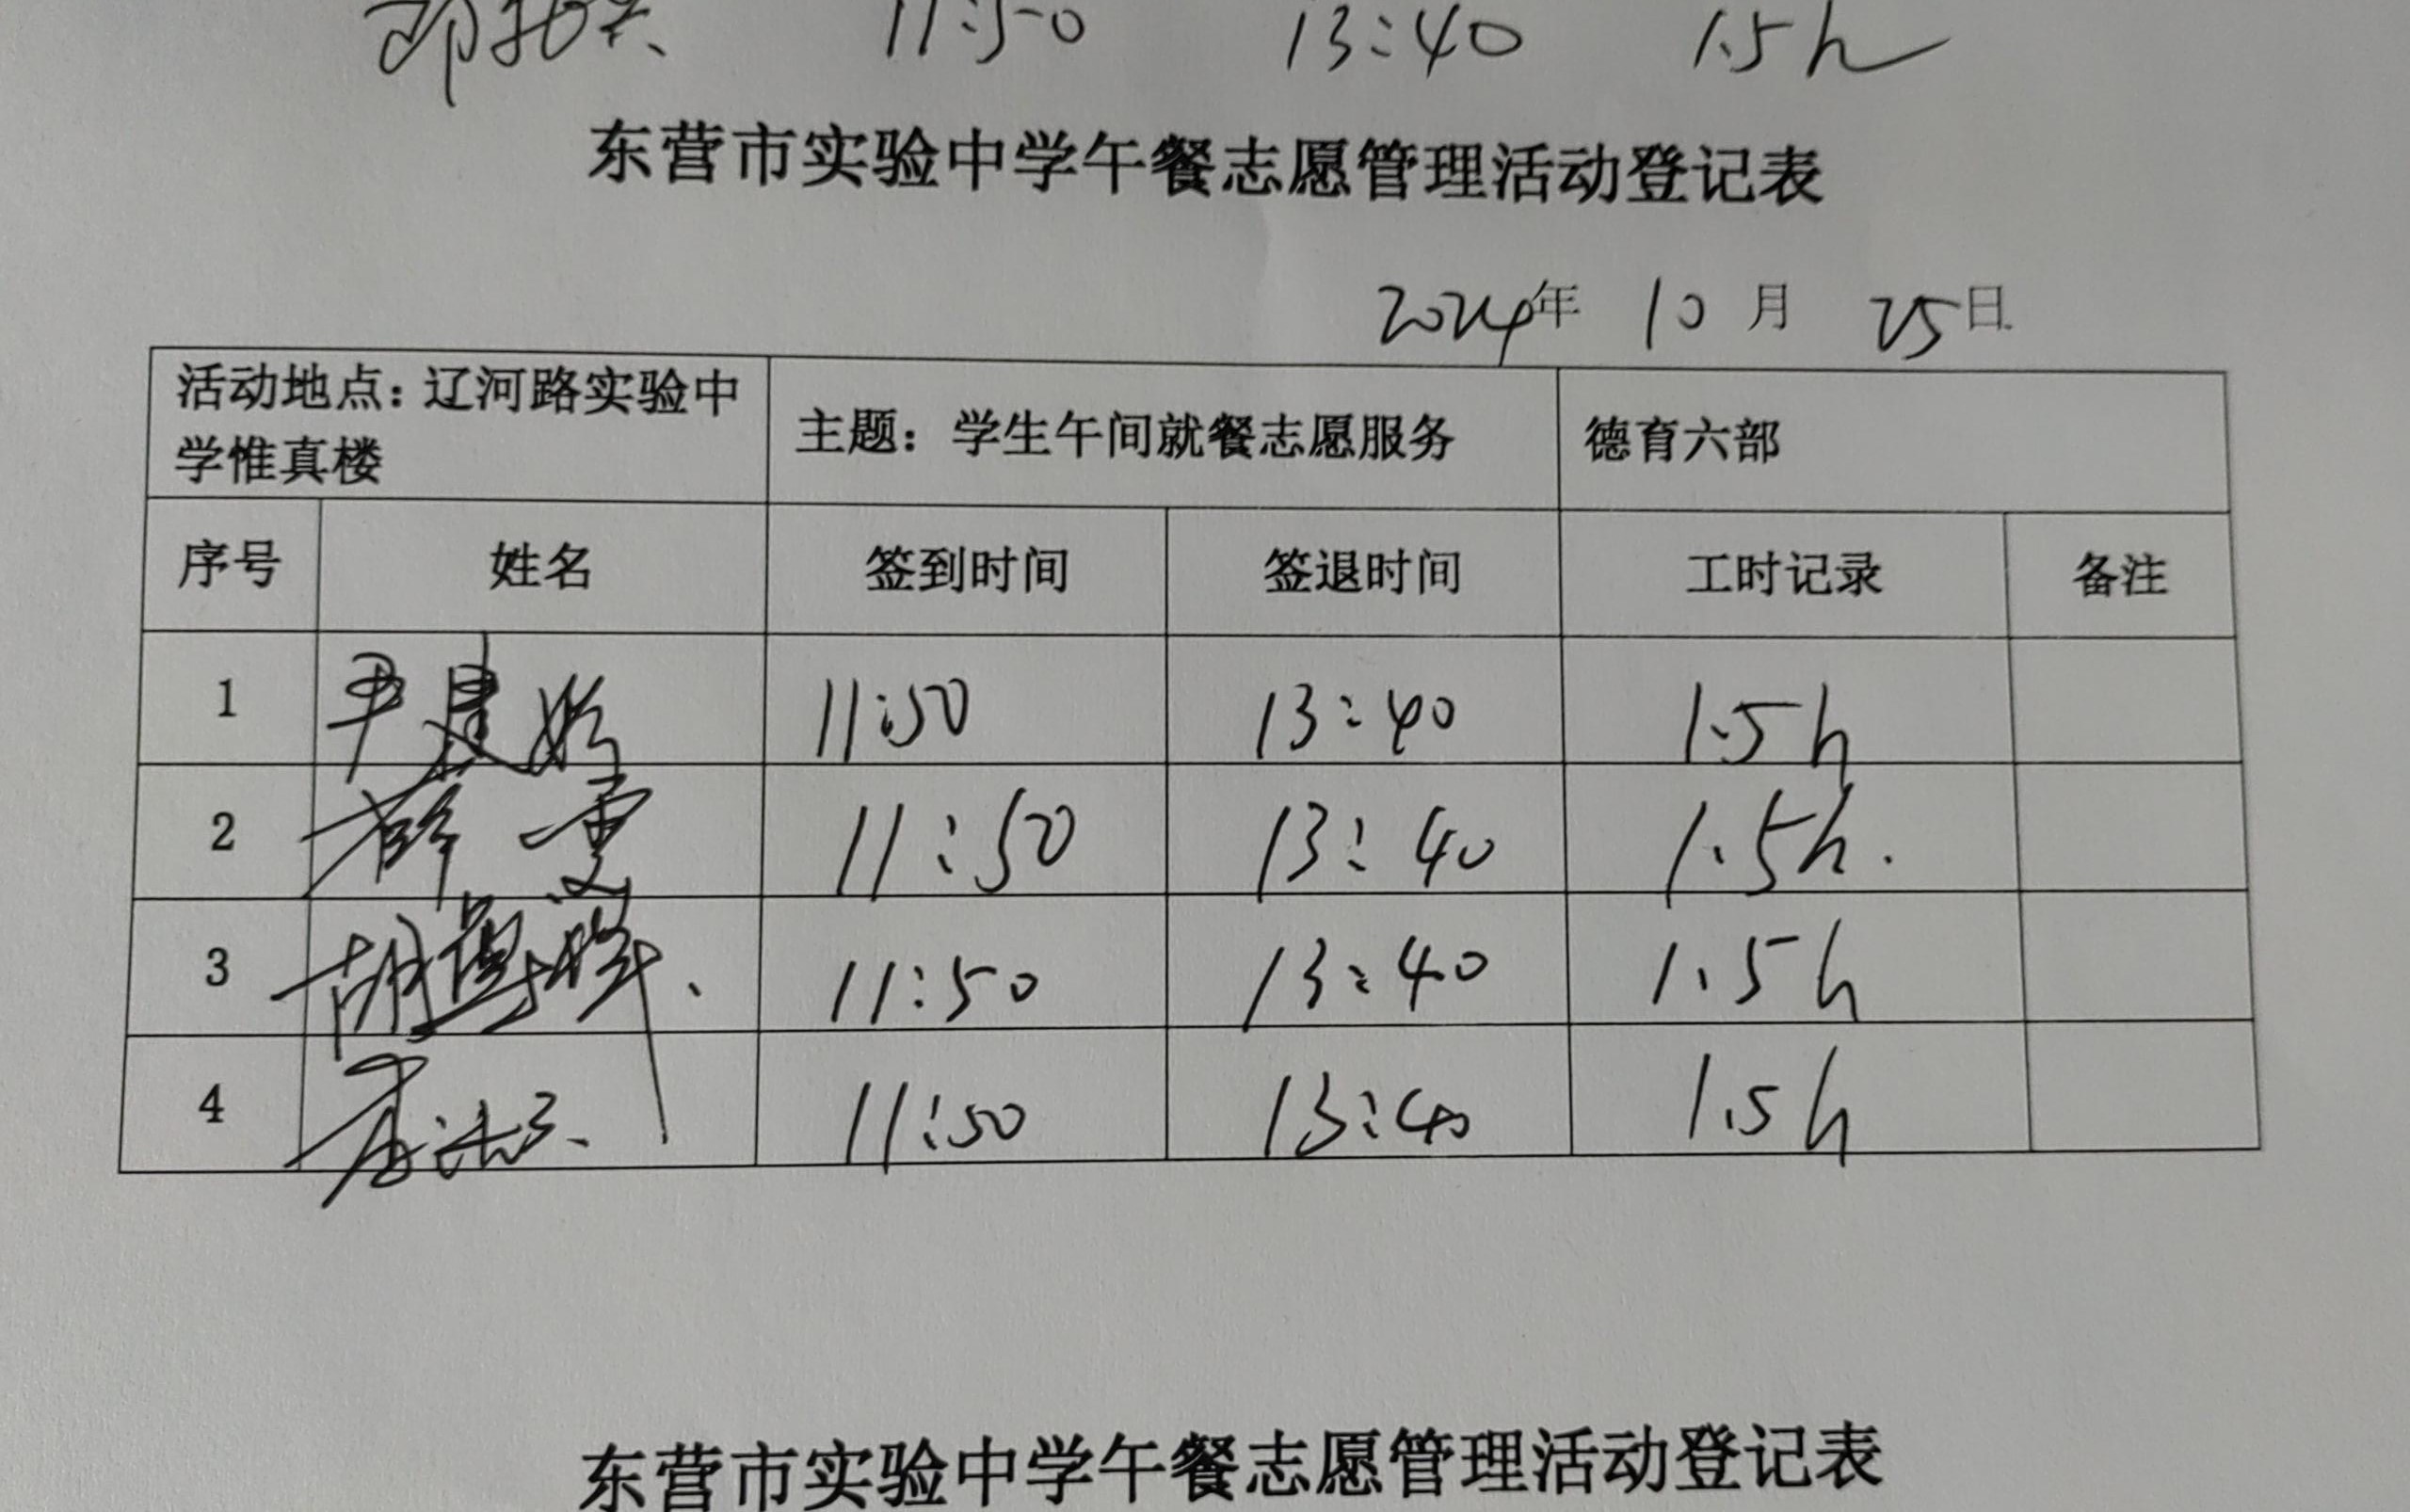 11:50 13:40 1.5h
东营市实验中学午餐志愿管理活动登记表
2024年 10月 25日
活动地点：辽河路实验中
学惟真楼
主题：学生午间就餐志愿服务
德育六部
序号 姓名 签到时间 签退时间 工时记录 备注
1 11:50 13:40 1.5h
2 薛雯 11:50 13:40 1.5h.
3 胡 11:50 13:40 1.5h
4 11:50 13:40 1.5h
东营市实验中学午餐志愿管理活动登记表